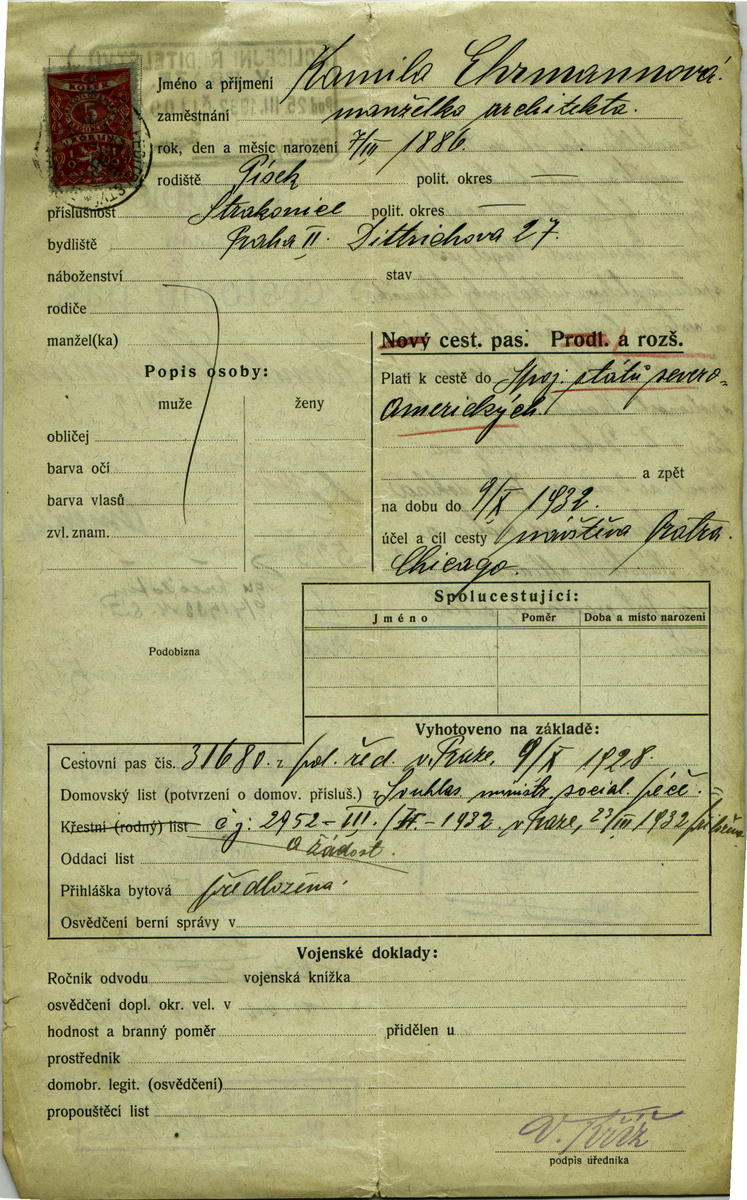 KOLEK
5
Jméno a příjmení Kamila Ehrmannová.
zaměstnání manželka architekta.
rok, den a měsíc narození 7/III 1886.
rodiště Písek polit. okres —
příslušnost Strakonice polit. okres —
bydliště Praha II. Dittrichova 27.
náboženství stav
rodiče
manžel(ka)
Nový cest. pas. Prodl. a rozš.
Popis osoby:
muže ženy
obličej
barva očí
barva vlasů
zvl. znam.
Platí k cestě do Spoj. států severo-
Amerických.
a zpět
na dobu do 9/X 1932.
účel a cíl cesty návštěva bratra.
Chicago.
Spolucestující:
Jméno Poměr Doba a místo narození
Podobizna
Vyhotoveno na základě:
Cestovní pas čís. 31680. z pol. řed. v Praze, 9/X 1928.
Domovský list (potvrzení o domov. přísluš.) Souhlas ministr. social. péče.
Křestní (rodný) list čj: 2952-III. 1932. v Praze, 23/III 1932
a žádost.
Oddací list
Přihláška bytová předložena.
Osvědčení berní správy v
Vojenské doklady:
Ročník odvodu vojenská knížka
osvědčení dopl. okr. vel. v
hodnost a branný poměr přidělen u
prostředník
domobr. legit. (osvědčení)
propouštěcí list
V. Kříž
podpis úředníka